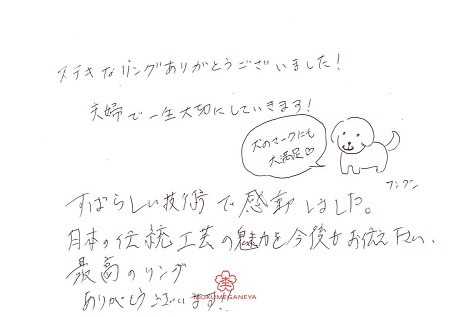 ステキなリングありがとうございました!
夫婦で一生大切にしていきます!
犬のマークにも
大満足♡
クンクン
すばらしい技術で感動しました。
日本の伝統工芸の魅力を今後もお伝え下さい、
最高のリング
ありがとうございます。
MOKUMEGANEYA